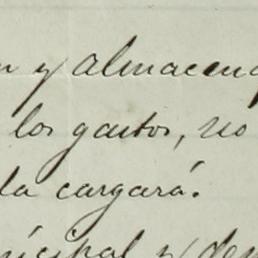 n y almacena
los gastos, no
la cargará.
nicipal y de